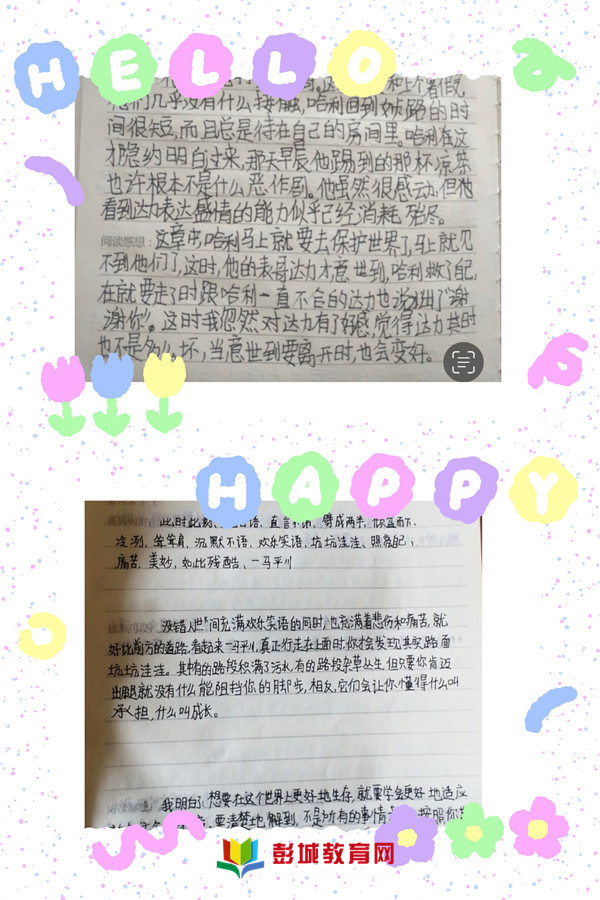 HELLO
他们几乎没有什么接触,哈利回到女贞路的时
间很短,而且总是待在自己的房间里。哈利在这
才隐约明白过来,那天早晨他踢到的那杯凉茶
也许根本不是什么恶作剧。他虽然很感动,但他
看到达力表达感情的能力似乎已经消耗殆尽。
阅读感想:这章中,哈利马上就要去保护世界了,马上就见
不到他们了,这时,他的表哥达力才意世到,哈利救了自己,
在就要走了时跟哈利一直不合的达力也说出了“谢
谢你”。这时我忽然对达力有了好感,觉得达力其时
也不是多么坏,当意世到要离开时,也会变好。
HAPPY
此时此刻、语、直言不讳、劈成两半、
凌冽、耸耸肩、沉默不语、欢乐笑语、坑坑洼洼、照亮自己、
痛苦、美妙、如此残酷、一马平川
没错,人世间充满欢乐笑语的同时,也充满着悲伤和痛苦,就
好比前方的道路,看起来一马平川,真正行走在上面时你才会发现其实路面
坑坑洼洼。其中有的路段积满了污水,有的路段杂草丛生,但只要你肯迈
出腿就没有什么能阻挡你的脚步,相反,它们会让你懂得什么叫
承担,什么叫成长。
我明白了,想要在这个世界上更好地生存,就要学会更好地适应
要清楚地了解到,不是所有的事情按照你
彭城教育网